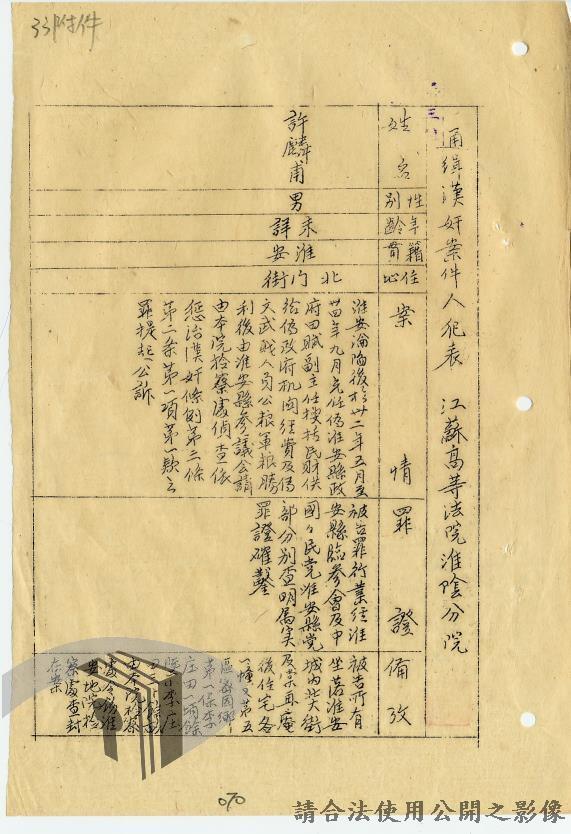 33附件
通緝漢奸案件人犯表 江蘇高等法院淮陰分院
姓名
性別
年齡
籍貫
住址
案情
罪證
備攷
許麟甫
男
未詳
淮安
北門街
淮安淪陷後於卅二年五月至
卅四年九月充任偽淮安縣政
府田賦副主任搜括民財供
給偽政府机関經費及偽
文武職人員公粮軍粮勝
利後由淮安縣參議會請
由本院检察處偵查依
懲治漢奸條例第三條
第二条第一項第一款之
罪提起公訴
被告罪行業經淮
安縣臨參會及中
國國民党淮安縣党
部分別查明属实
罪證確鑿
被告所有
坐落淮安
城内北大街
及棠巷庵
後住宅各
一幢又第五
區
第一保李
庄田
李庄
由本院检察
處令飭淮
安地院检
察處查封
在案
070
請合法使用公開之影像